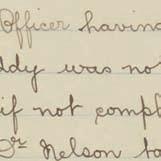 Officer having
ddy was no
if not compl
Dr Nelson t